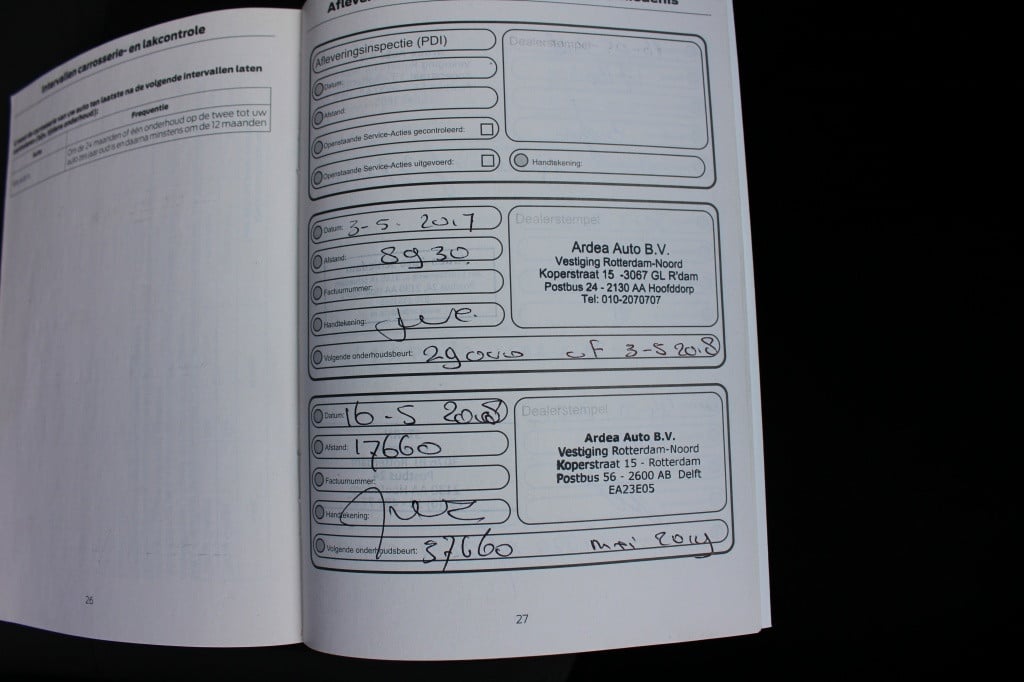 Intervallen carrosserie- en lakcontrole
na de volgende intervallen laten
Frequentie
Om de 24 maanden of één onderhoud op de twee tot uw
auto tien jaar oud is en daarna minstens om de 12 maanden
26
Afleveringsinspectie (PDI)
Dealerstempel
Datum:
Afstand:
Openstaande Service-Acties gecontroleerd:
Openstaande Service-Acties uitgevoerd:
Handtekening:
Datum: 3-5-2017
Dealerstempel
Afstand: 8930
Factuurnummer:
Handtekening:
Ardea Auto B.V.
Vestiging Rotterdam-Noord
Koperstraat 15 -3067 GL R'dam
Postbus 24 - 2130 AA Hoofddorp
Tel: 010-2070707
Volgende onderhoudsbeurt: 29000 of 3-5 2018
Datum: 16-5 2018
Dealerstempel
Afstand: 17660
Factuurnummer:
Handtekening:
Ardea Auto B.V.
Vestiging Rotterdam-Noord
Koperstraat 15 - Rotterdam
Postbus 56 - 2600 AB Delft
EA23E05
Volgende onderhoudsbeurt: 37660 mei 2019
27